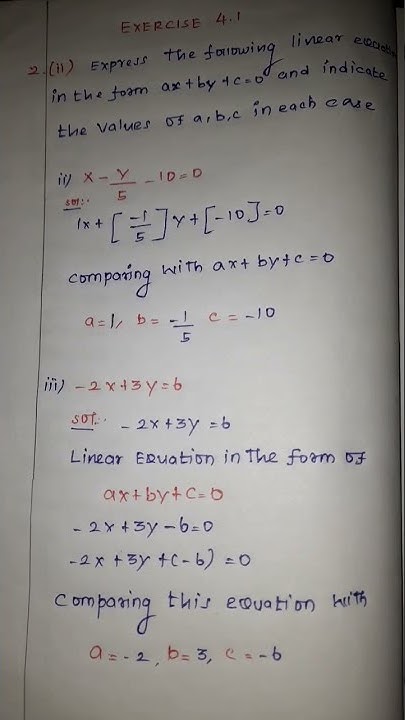 EXERCISE 4.1
2.(ii) Express the following linear equation
in the form ax+by+c=0 and indicate
the values of a,b,c in each case
ii) x - y/5 - 10=0
sol:-
1x + [-1/5]y + [-10]=0
comparing with ax+by+c=0
a=1, b= -1/5 c = -10
iii) -2x+3y=6
sol:- -2x+3y=6
Linear Equation in The form of
ax+by+c=0
-2x+3y-6=0
-2x+3y+(-6)=0
Comparing this equation with
a=-2, b=3, c=-6